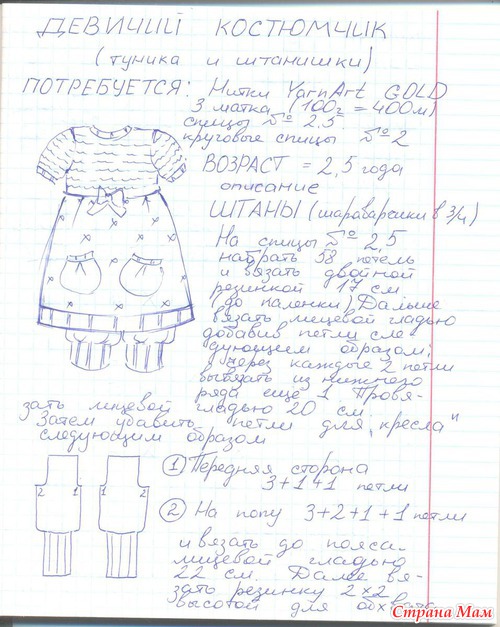 ДЕВИЧИЙ КОСТЮМЧИК
(туника и штанишки)
ПОТРЕБУЕТСЯ: Нитки YarnArt GOLD
3 матка (100г = 400м)
спицы №2.5
круговые спицы №2
ВОЗРАСТ = 2,5 года
описание
ШТАНЫ (шароварчики в 3/4)
На спицы № 2,5
набрать 58 петель
и вязать двойной
резинкой 17 см
(до паленки) Дальше
вязать лицевой гладью
добавив петли сле-
дующием образом:
через каждые 2 петли
вывязать из нижнего
ряда еще 1 Провя-
зать лицевой гладью 20 см
Затем убавить петли для „кресла"
следующим образом
1 Передняя сторона
3+1+1 петли
2 1 1 2
2 На попу 3+2+1+1 петли
и вязать до пояса
лицевой гладью
22 см. Далее вя-
зать резинку 2×2
высотой для обхвата
Страна Мам